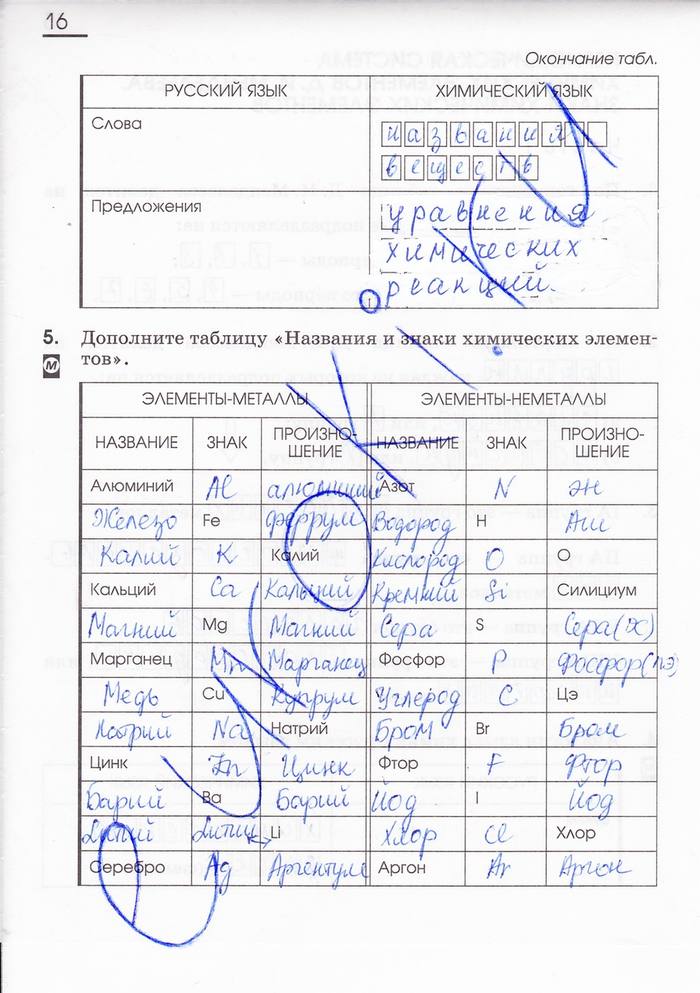 16
Окончание табл.
РУССКИЙ ЯЗЫК ХИМИЧЕСКИЙ ЯЗЫК
Слова названия
веществ
Предложения уравнения
химических
реакций.
5. Дополните таблицу «Названия и знаки химических элемен-
М тов».
ЭЛЕМЕНТЫ-МЕТАЛЛЫ ЭЛЕМЕНТЫ-НЕМЕТАЛЛЫ
НАЗВАНИЕ ЗНАК ПРОИЗНО-ШЕНИЕ НАЗВАНИЕ ЗНАК ПРОИЗНО-ШЕНИЕ
Алюминий Al алюминий Азот N эн
Железо Fe феррум Водород H Аш
Калий K Калий Кислород O О
Кальций Ca Кальций Кремний Si Силициум
Магний Mg Магний Сера S Сера(эс)
Марганец Mn Марганец Фосфор P Фосфор(пэ)
Медь Cu Купрум Углерод C Цэ
Натрий Na Натрий Бром Br Бром
Цинк Zn Цинк Фтор F Фтор
Барий Ba Барий Йод I Йод
Литий Литий Li Хлор Cl Хлор
Серебро Ag Аргентум Аргон Ar Аргон